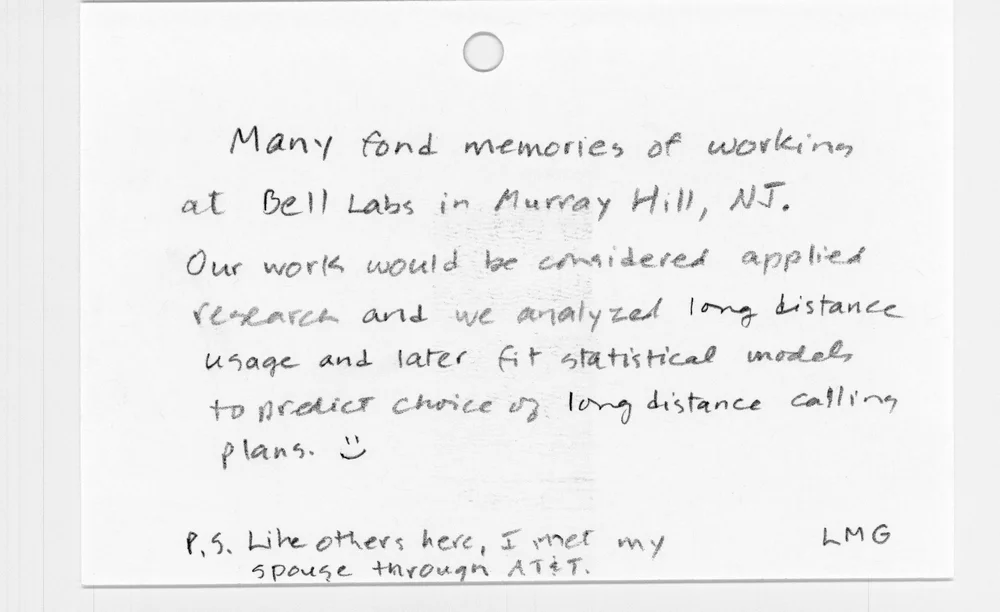 Many fond memories of working
at Bell Labs in Murray Hill, NJ.
Our work would be considered applied
research and we analyzed long distance
usage and later fit statistical models
to predict choice of long distance calling
plans. :)
P.S. Like others here, I met my
spouse through AT&T.
LMG